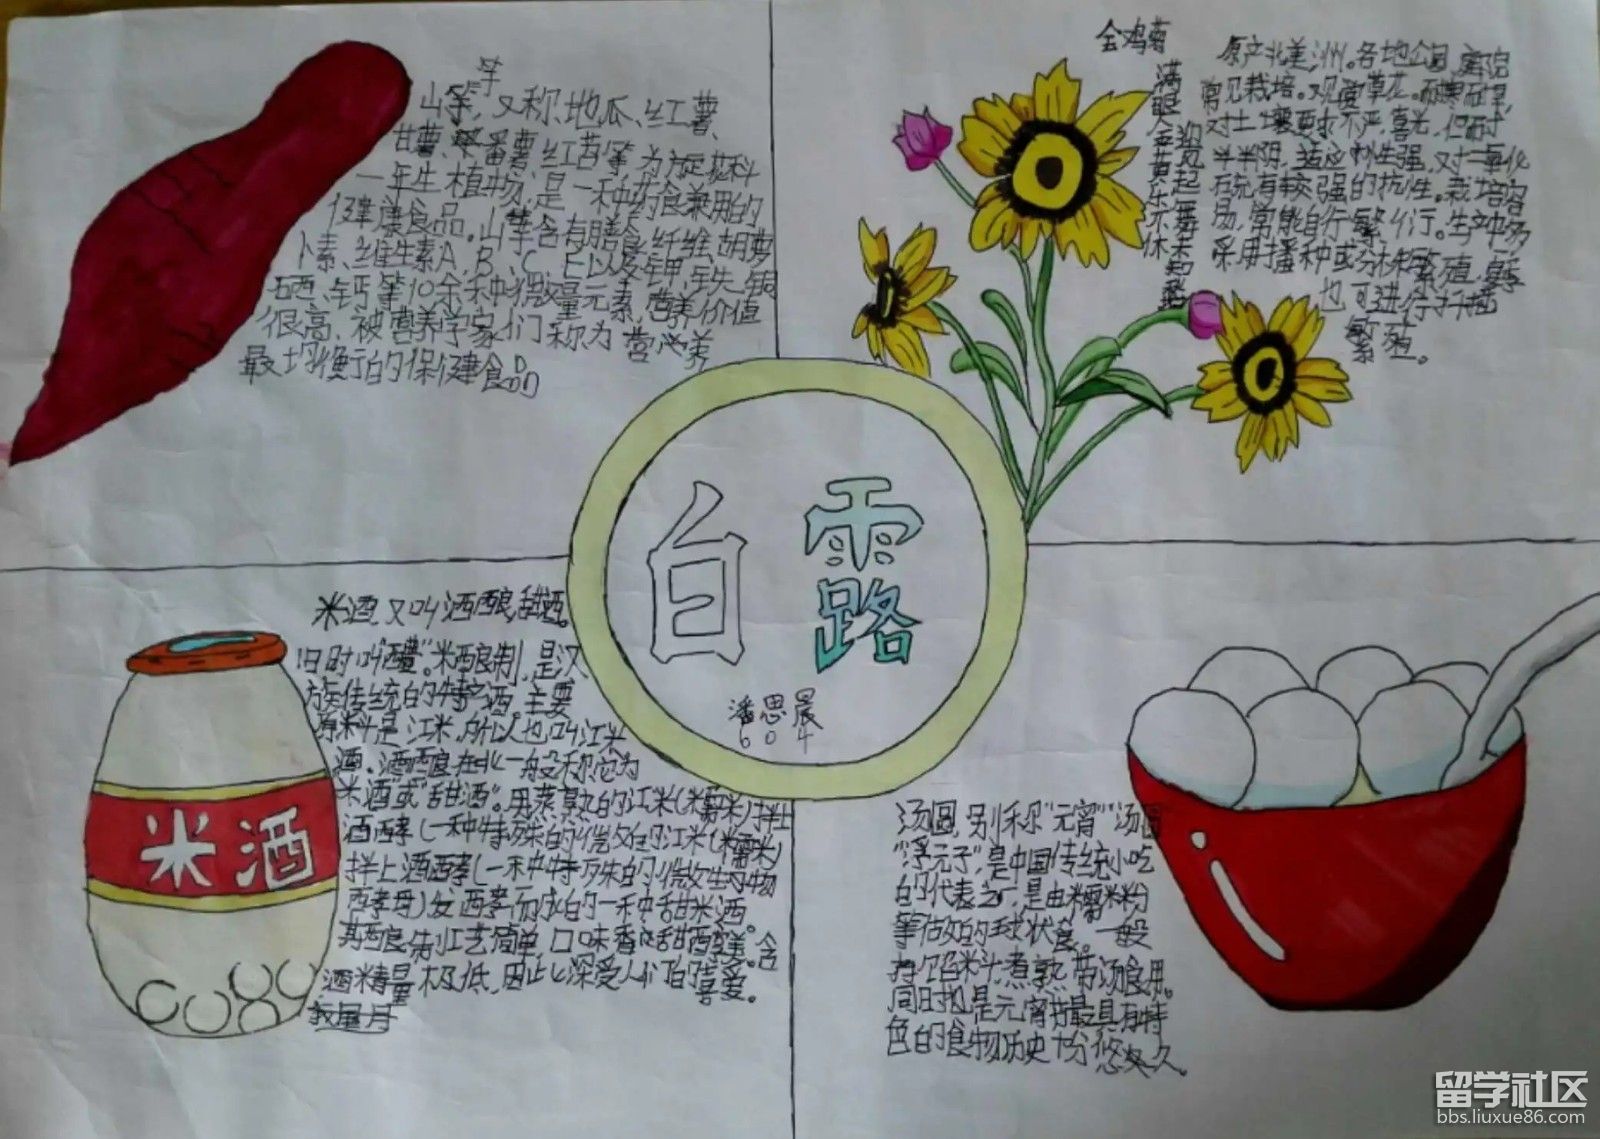 芋
山芋,又称地瓜、红薯、
甘薯、番薯、红苕等,为旋花科
一年生植物,是一种药食兼用的
健康食品。山芋含有膳食纤维、胡萝
卜素、维生素A、B、C、E以及钾、铁、铜
硒、钙等10余种微量元素,营养价值
很高,被营养学家们称为营养
最均衡的保健食品
金鸡菊
满眼金黄乐不休
迎风起舞未知愁
原产北美洲。各地公园、庭院
常见栽培。观赏草花。耐寒耐旱,
对土壤要求不严,喜光,但耐
半阴,适应性强,对二氧化
硫有较强的抗性。栽培容
易,常能自行繁衍。生产中多
采用播种或分株繁殖,夏季
也可进行扦插
繁殖。
白露
潘思晨
604
米酒,又叫酒酿,甜酒。
旧时叫“醴”。米酿制,是汉
族传统的特产酒,主要
原料是江米,所以也叫江米
酒。酒酿在北一般称它为
米酒”或“甜酒”。用蒸熟的江米(糯米)拌上
酒酵(一种特殊的微生的江米(糯米)
拌上酒酵(一种特殊的微生物
酵母)发酵而成的一种甜米酒。
其酿制工艺简单,口味香甜醇美。含
酒精量极低,因此深受人们的喜爱。
米酒
汤圆,别称“元宵”“汤圆”
“浮元子”,是中国传统小吃
的代表之一,是由糯米粉
等做的球状食。一般
有馅料煮熟带汤食用。
同时也是元宵节最具有特
色的食物历史十分悠久。
留学社区
bbs.liuxue86.com